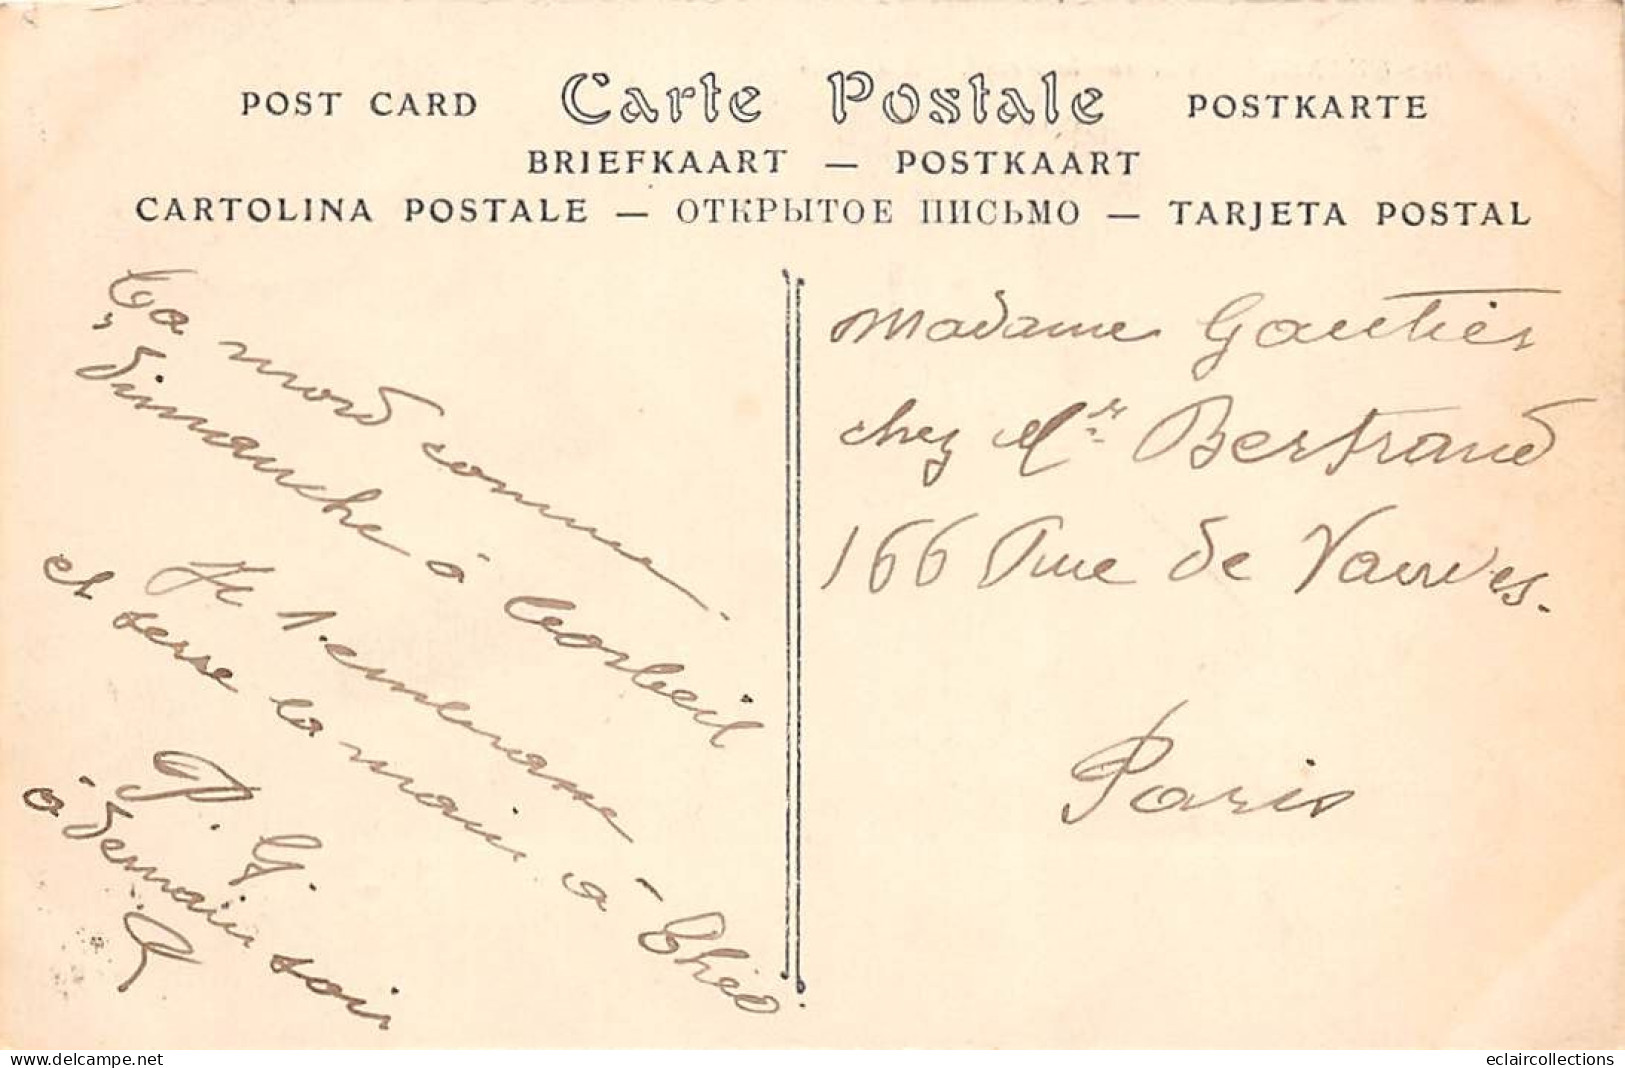 POST CARD Carte Postale POSTKARTE
BRIEFKAART — POSTKAART
CARTOLINA POSTALE — ОТКРЫТОЕ ПИСЬМО — TARJETA POSTAL
Ça mord comme
dimanche à Corbeil
Je t'embrasse
et serre la main à Théo
P. G.
à demain soir
Madame Gautier
chez Mr Bertrand
166 Rue de Vanves.
Paris
www.delcampe.net
eclaircollections